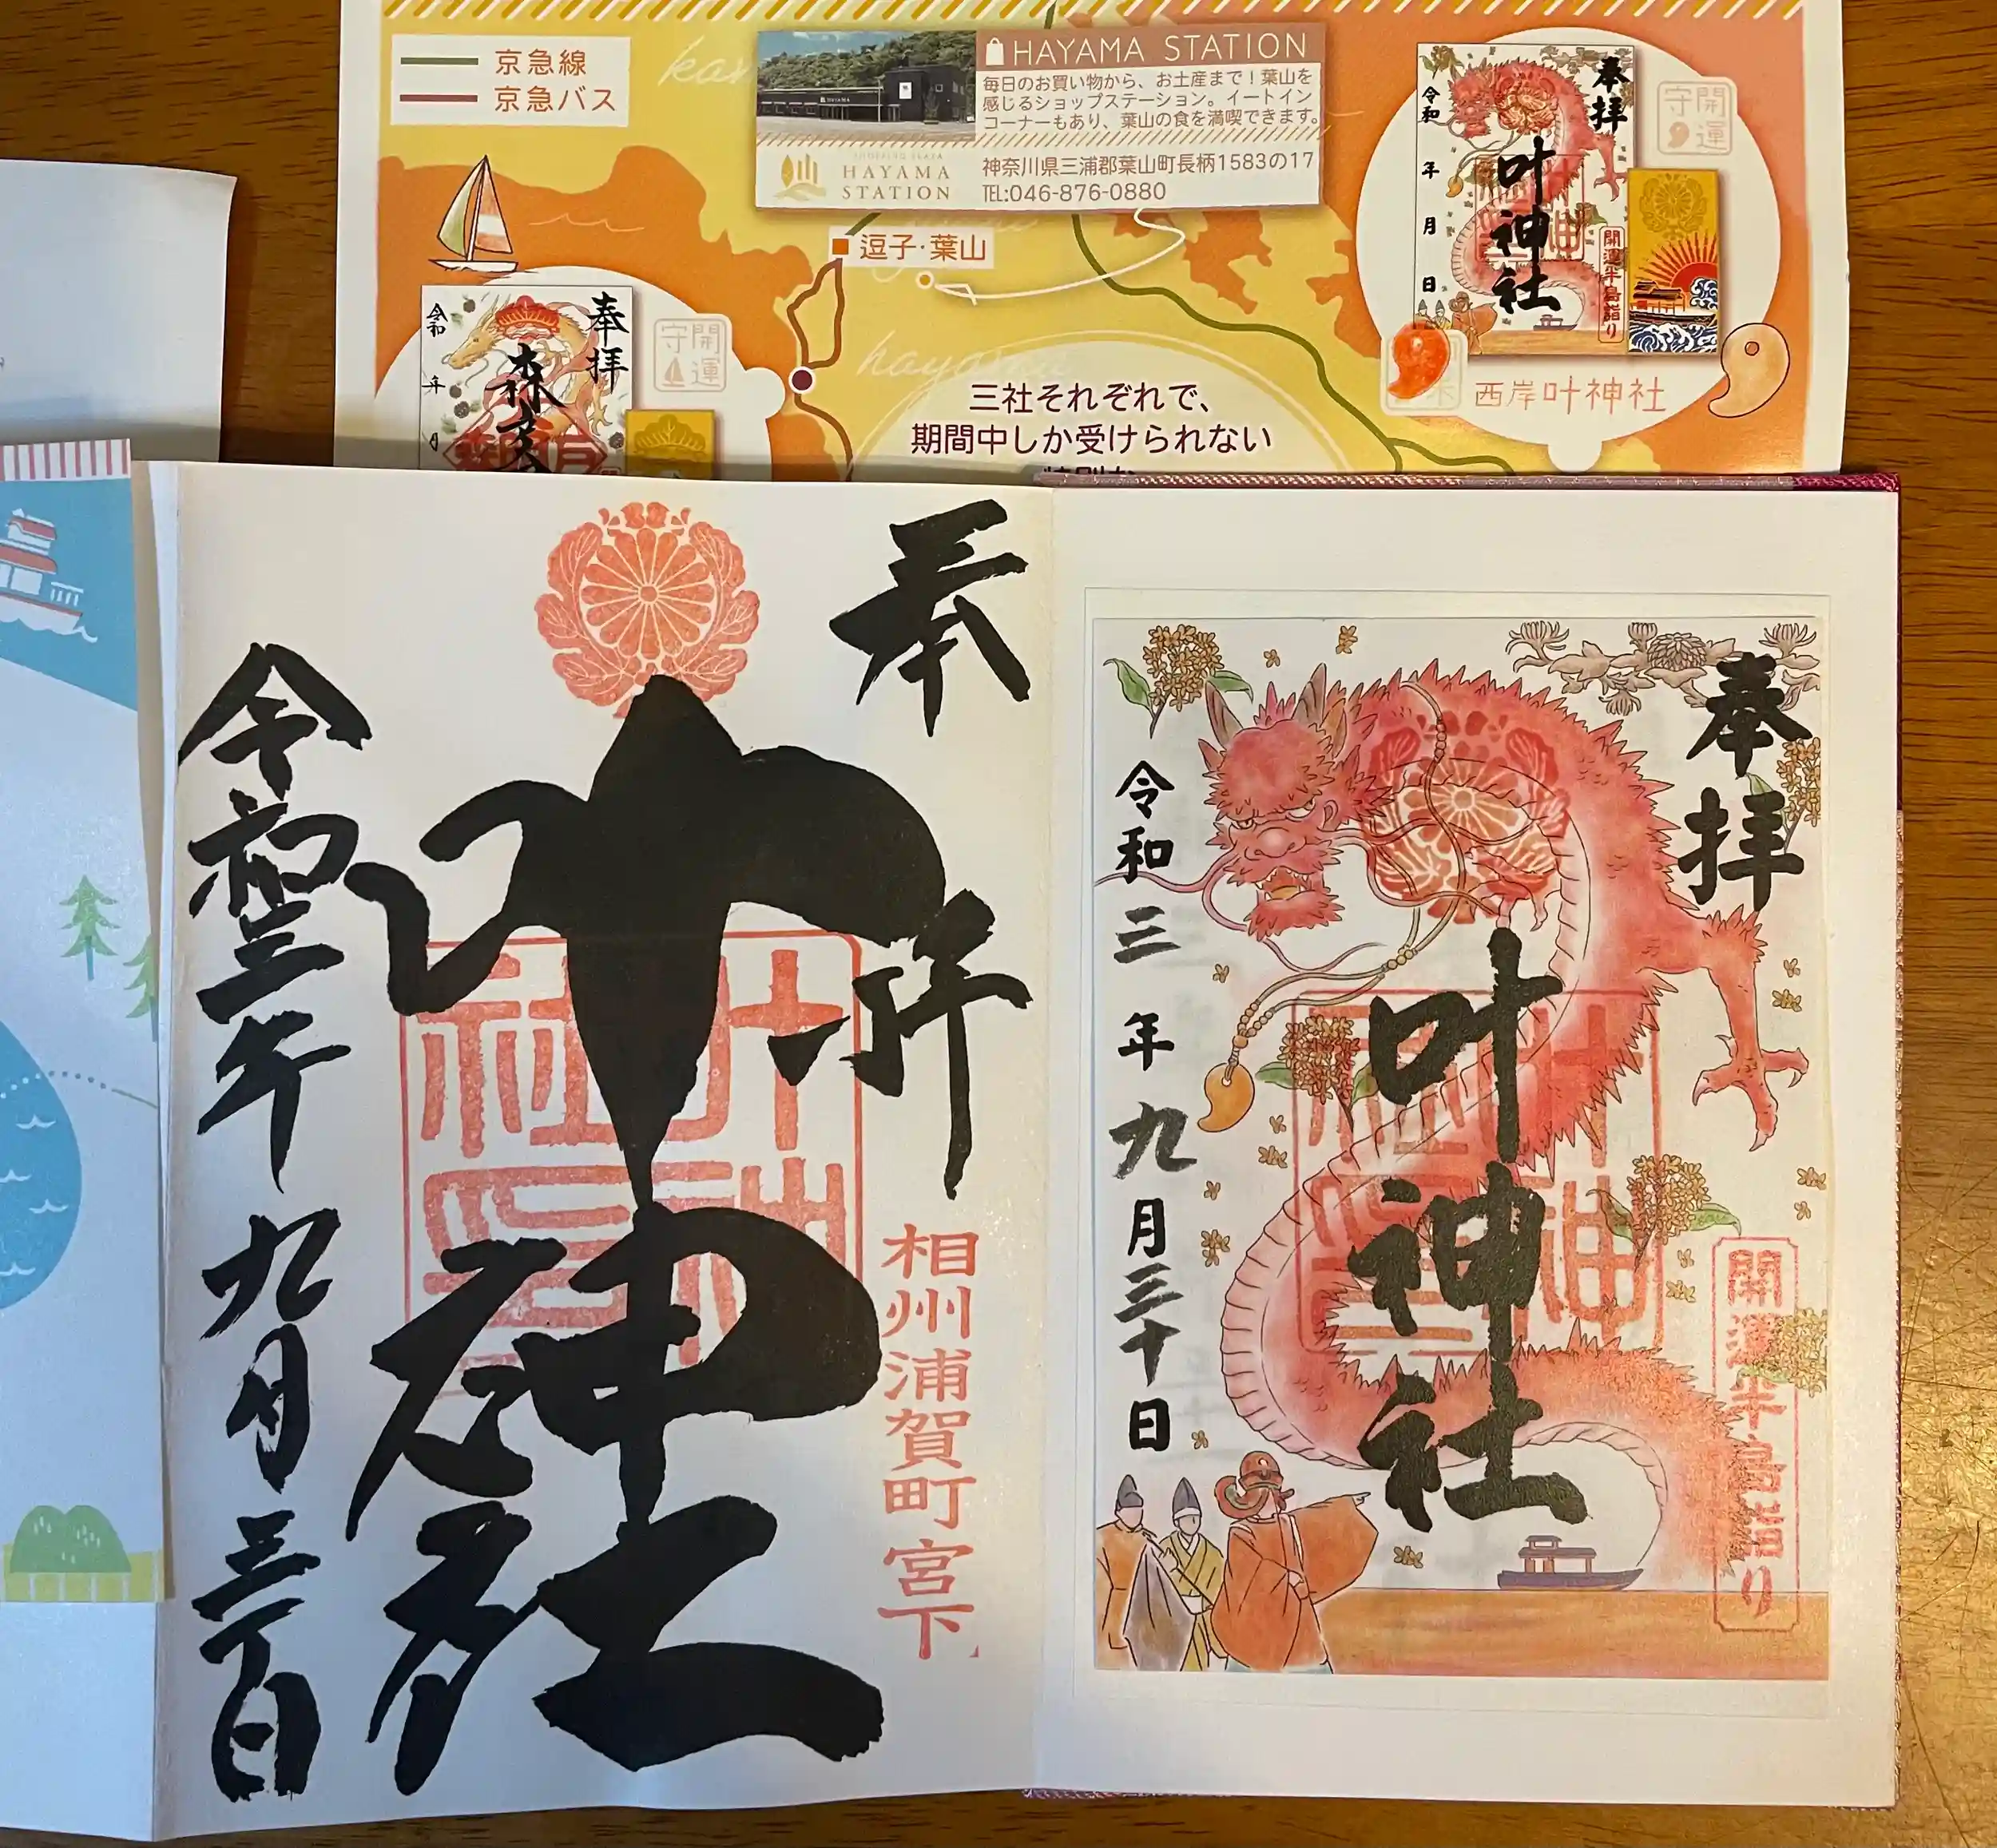 京急線
京急バス
HAYAMA STATION
毎日のお買い物から、お土産まで！葉山を
感じるショップステーション。イートイン
コーナーもあり、葉山の食を満喫できます。
HAYAMA
STATION
神奈川県三浦郡葉山町長柄1583の17
TEL:046-876-0880
逗子・葉山
hayama
三社それぞれで、
期間中しか受けられない
奉拝
森
令和
年
月
開運
守
奉拝
叶神社
開運半島詣り
令和
年
月
日
開運
守
西岸叶神社
奉拝
叶神社
相州浦賀町宮下
令和三年九月三十日
叶神社
奉拝
叶神社
開運半島詣り
令和三年九月三十日